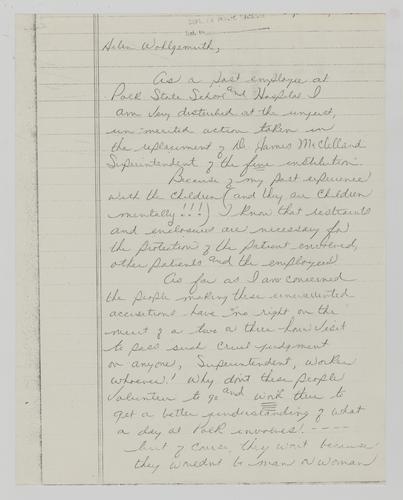 Helen Wohlgemuth,
As a past employee at
Polk State School and Hospital I
am very disturbed at the unjust,
un-merited action taken in
the replacement of Dr. James McClelland
Superintendent of the fine institution.
Because of my past experience
with the children (and they are children
mentally!!!) I know that restraints
and enclosures are necessary for
the protection of the patient envolved,
other patients and the employees
As far as I am concerned
the people making these unwarranted
accusations have no right on the
merit of a two a three-hour visit
to pass such cruel judgment
on anyone, Superintendent, worker
whoever! Why don't these people
volunteer to go and work there to
get a better understanding of what
a day at Polk involves! -----
but of course, they won't because
they wouldn't be man or woman